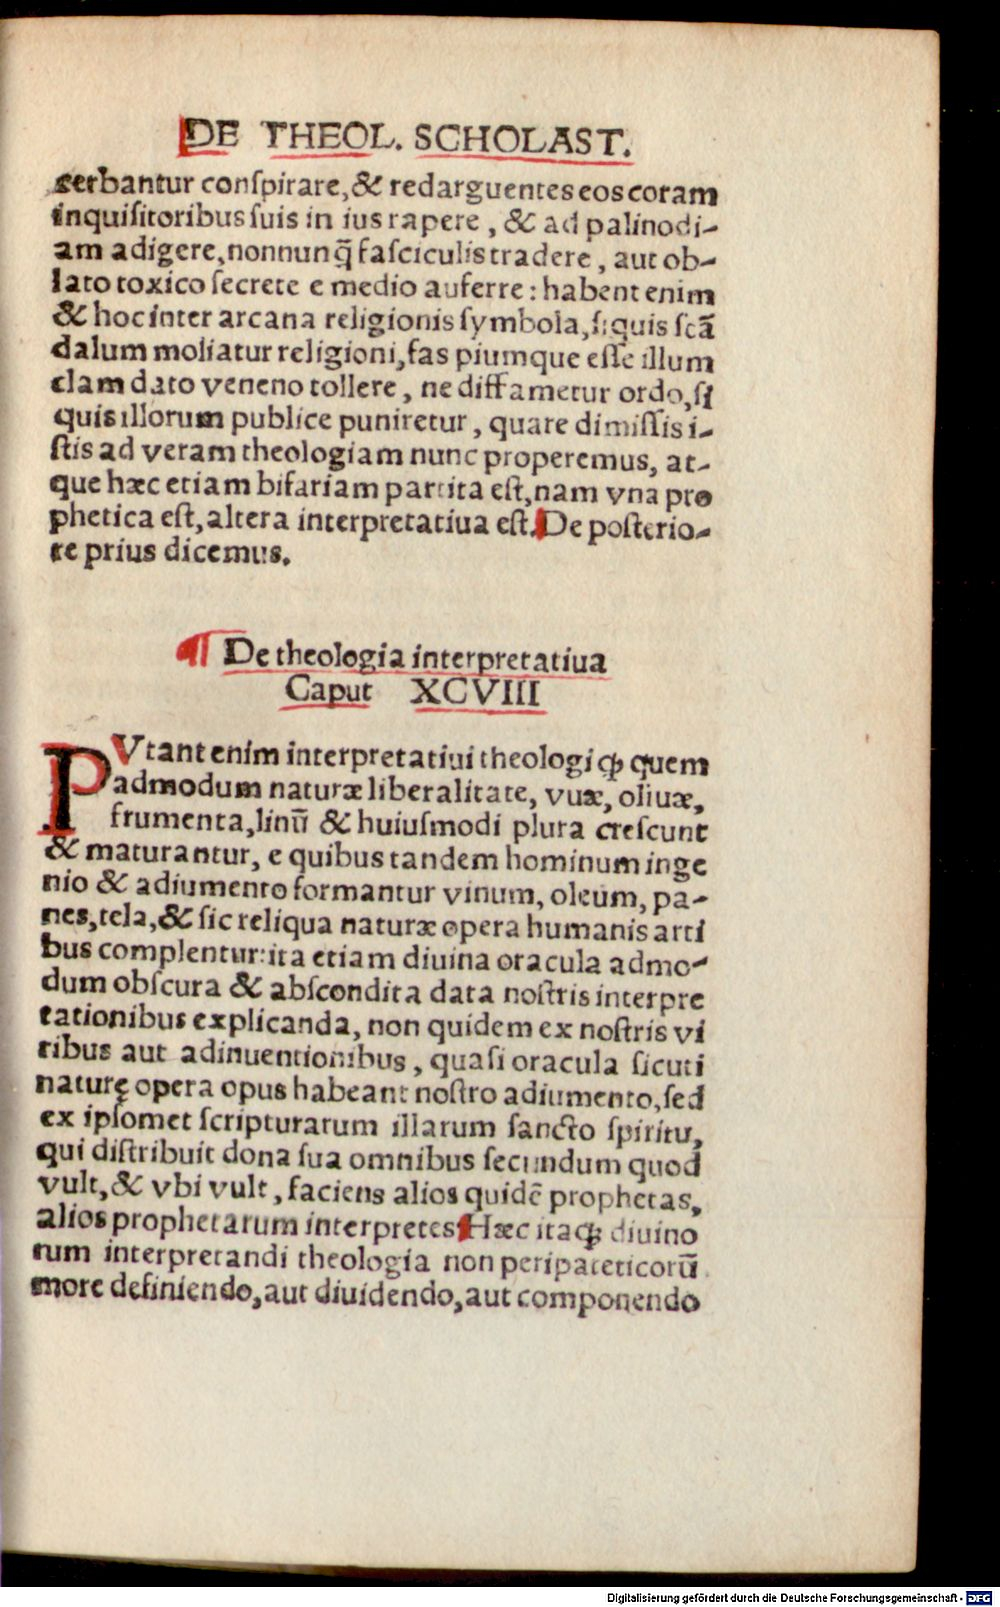 DE THEOL. SCHOLAST.
cerbantur conſpirare, & redarguentes eos coram
inquiſitoribus ſuis in ius rapere, & ad palinodi-
am adigere, nonnunq̃ faſciculis tradere, aut ob-
lato toxico ſecrete e medio auferre: habent enim
& hoc inter arcana religionis ſymbola, ſi quis ſcã
dalum moliatur religioni, fas piumque eſſe illum
clam dato veneno tollere, ne diffametur ordo, ſi
quis illorum publice puniretur, quare dimiſſis i-
ſtis ad veram theologiam nunc properemus, at-
que hæc etiam bifariam partita eſt, nam vna pro
phetica eſt, altera interpretatiua eſt. De poſterio-
re prius dicemus.
¶ De theologia interpretatiua
Caput XCVIII
PVtant enim interpretatiui theologi ꝙ quem
admodum naturæ liberalitate, vuæ, oliuæ,
frumenta, linū & huiuſmodi plura creſcunt
& maturantur, e quibus tandem hominum inge
nio & adiumento formantur vinum, oleum, pa-
nes, tela, & ſic reliqua naturæ opera humanis arti
bus complentur: ita etiam diuina oracula admo-
dum obſcura & abſcondita data noſtris interpre
tationibus explicanda, non quidem ex noſtris vi
ribus aut adinuentionibus, quaſi oracula ſicuti
naturę opera opus habeant noſtro adiumento, ſed
ex ipſomet ſcripturarum illarum ſancto ſpiritu,
qui diſtribuit dona ſua omnibus ſecundum quod
vult, & vbi vult, faciens alios quidē prophetas,
alios prophetarum interpretes. Hæc itaqꝫ diuino
rum interpretandi theologia non peripateticorū
more definiendo, aut diuidendo, aut componendo
Digitalisierung gefördert durch die Deutsche Forschungsgemeinschaft - DFG